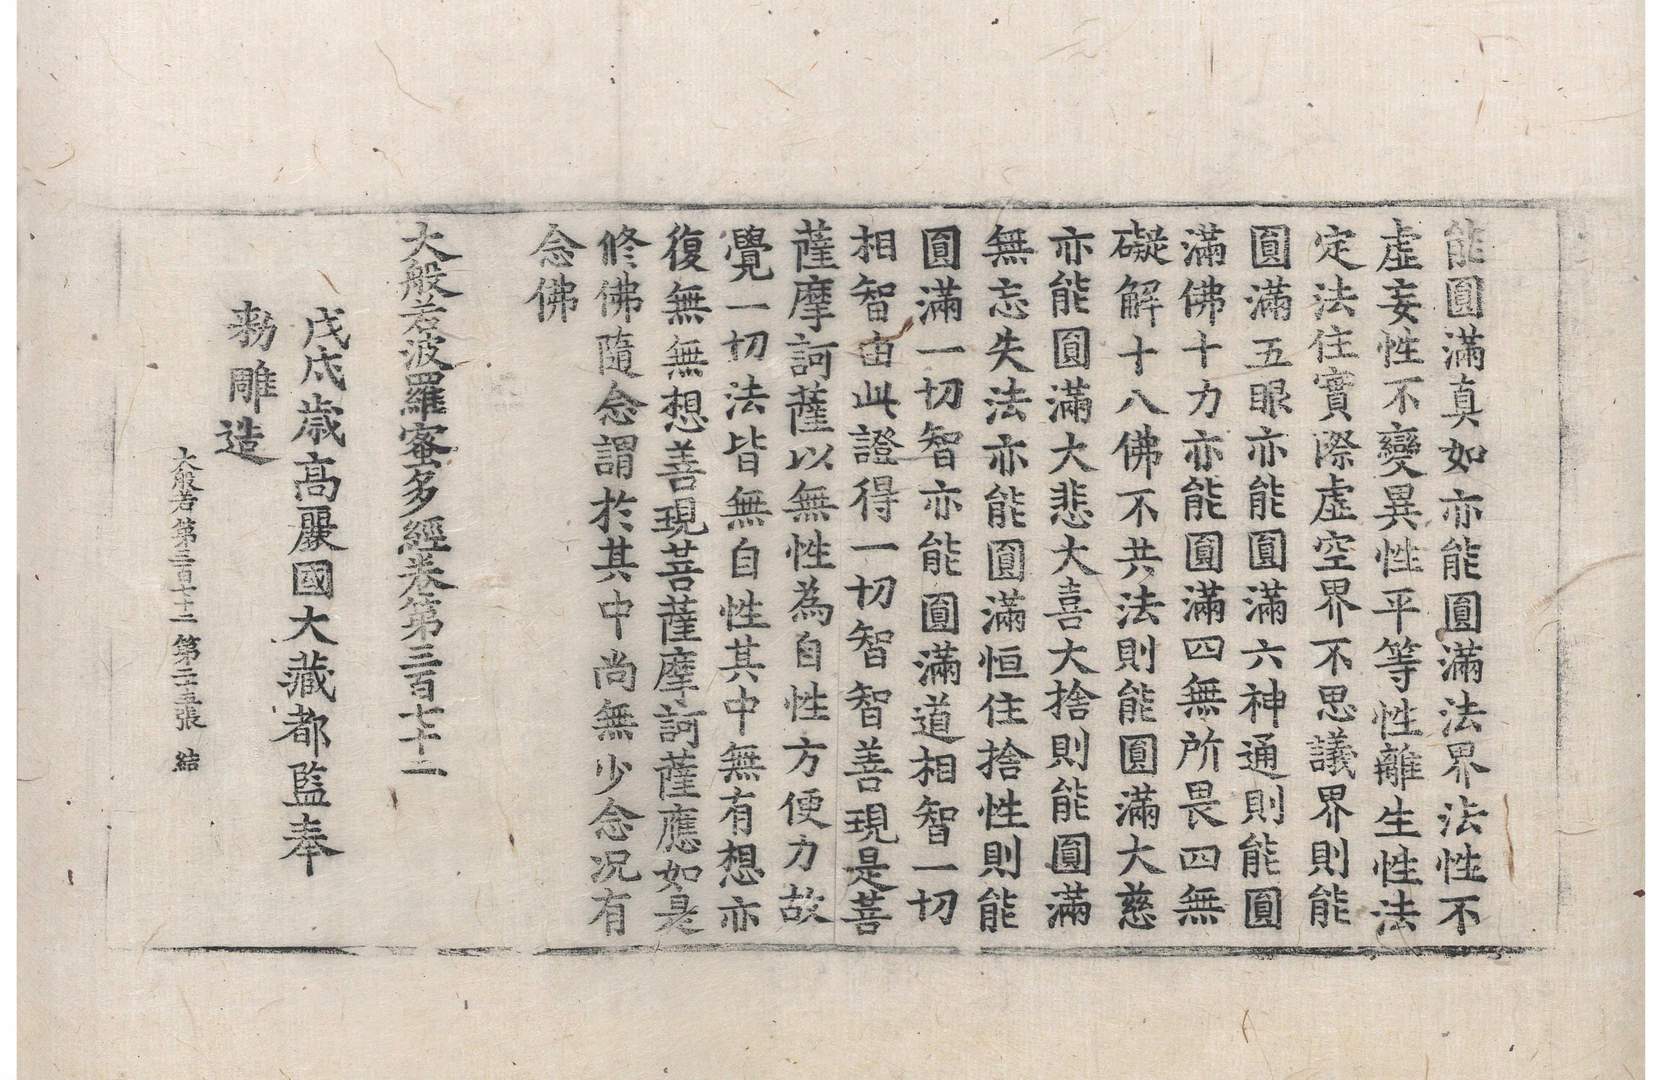 能圓滿真如亦能圓滿法界法性不
虛妄性不變異性平等性離生性法
定法住實際虛空界不思議界則能
圓滿五眼亦能圓滿六神通則能圓
滿佛十力亦能圓滿四無所畏四無
礙解十八佛不共法則能圓滿大慈
亦能圓滿大悲大喜大捨則能圓滿
無忘失法亦能圓滿恒住捨性則能
圓滿一切智亦能圓滿道相智一切
相智由此證得一切智智善現是菩
薩摩訶薩以無性為自性方便力故
覺一切法皆無自性其中無有想亦
復無無想善現菩薩摩訶薩應如是
修佛隨念謂於其中尚無少念况有
念佛
大般若波羅蜜多經卷第三百七十二
戊戌歲高麗國大藏都監奉
勑雕造
大般若第三百七十二 第二十五張 結